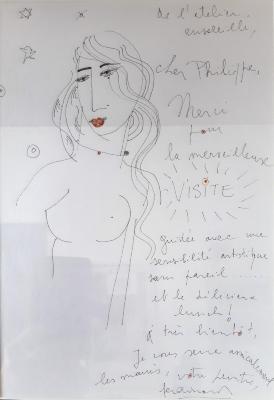 De l'atelier
ensoleillé,
cher Philippe,
Merci
pour
la merveilleuse
VISITE
guidée avec une
sensibilité artistique
sans pareil .....
et le délicieux
lunch!
à très bientôt,
Je vous serre amicalement
les mains, votre peintre,